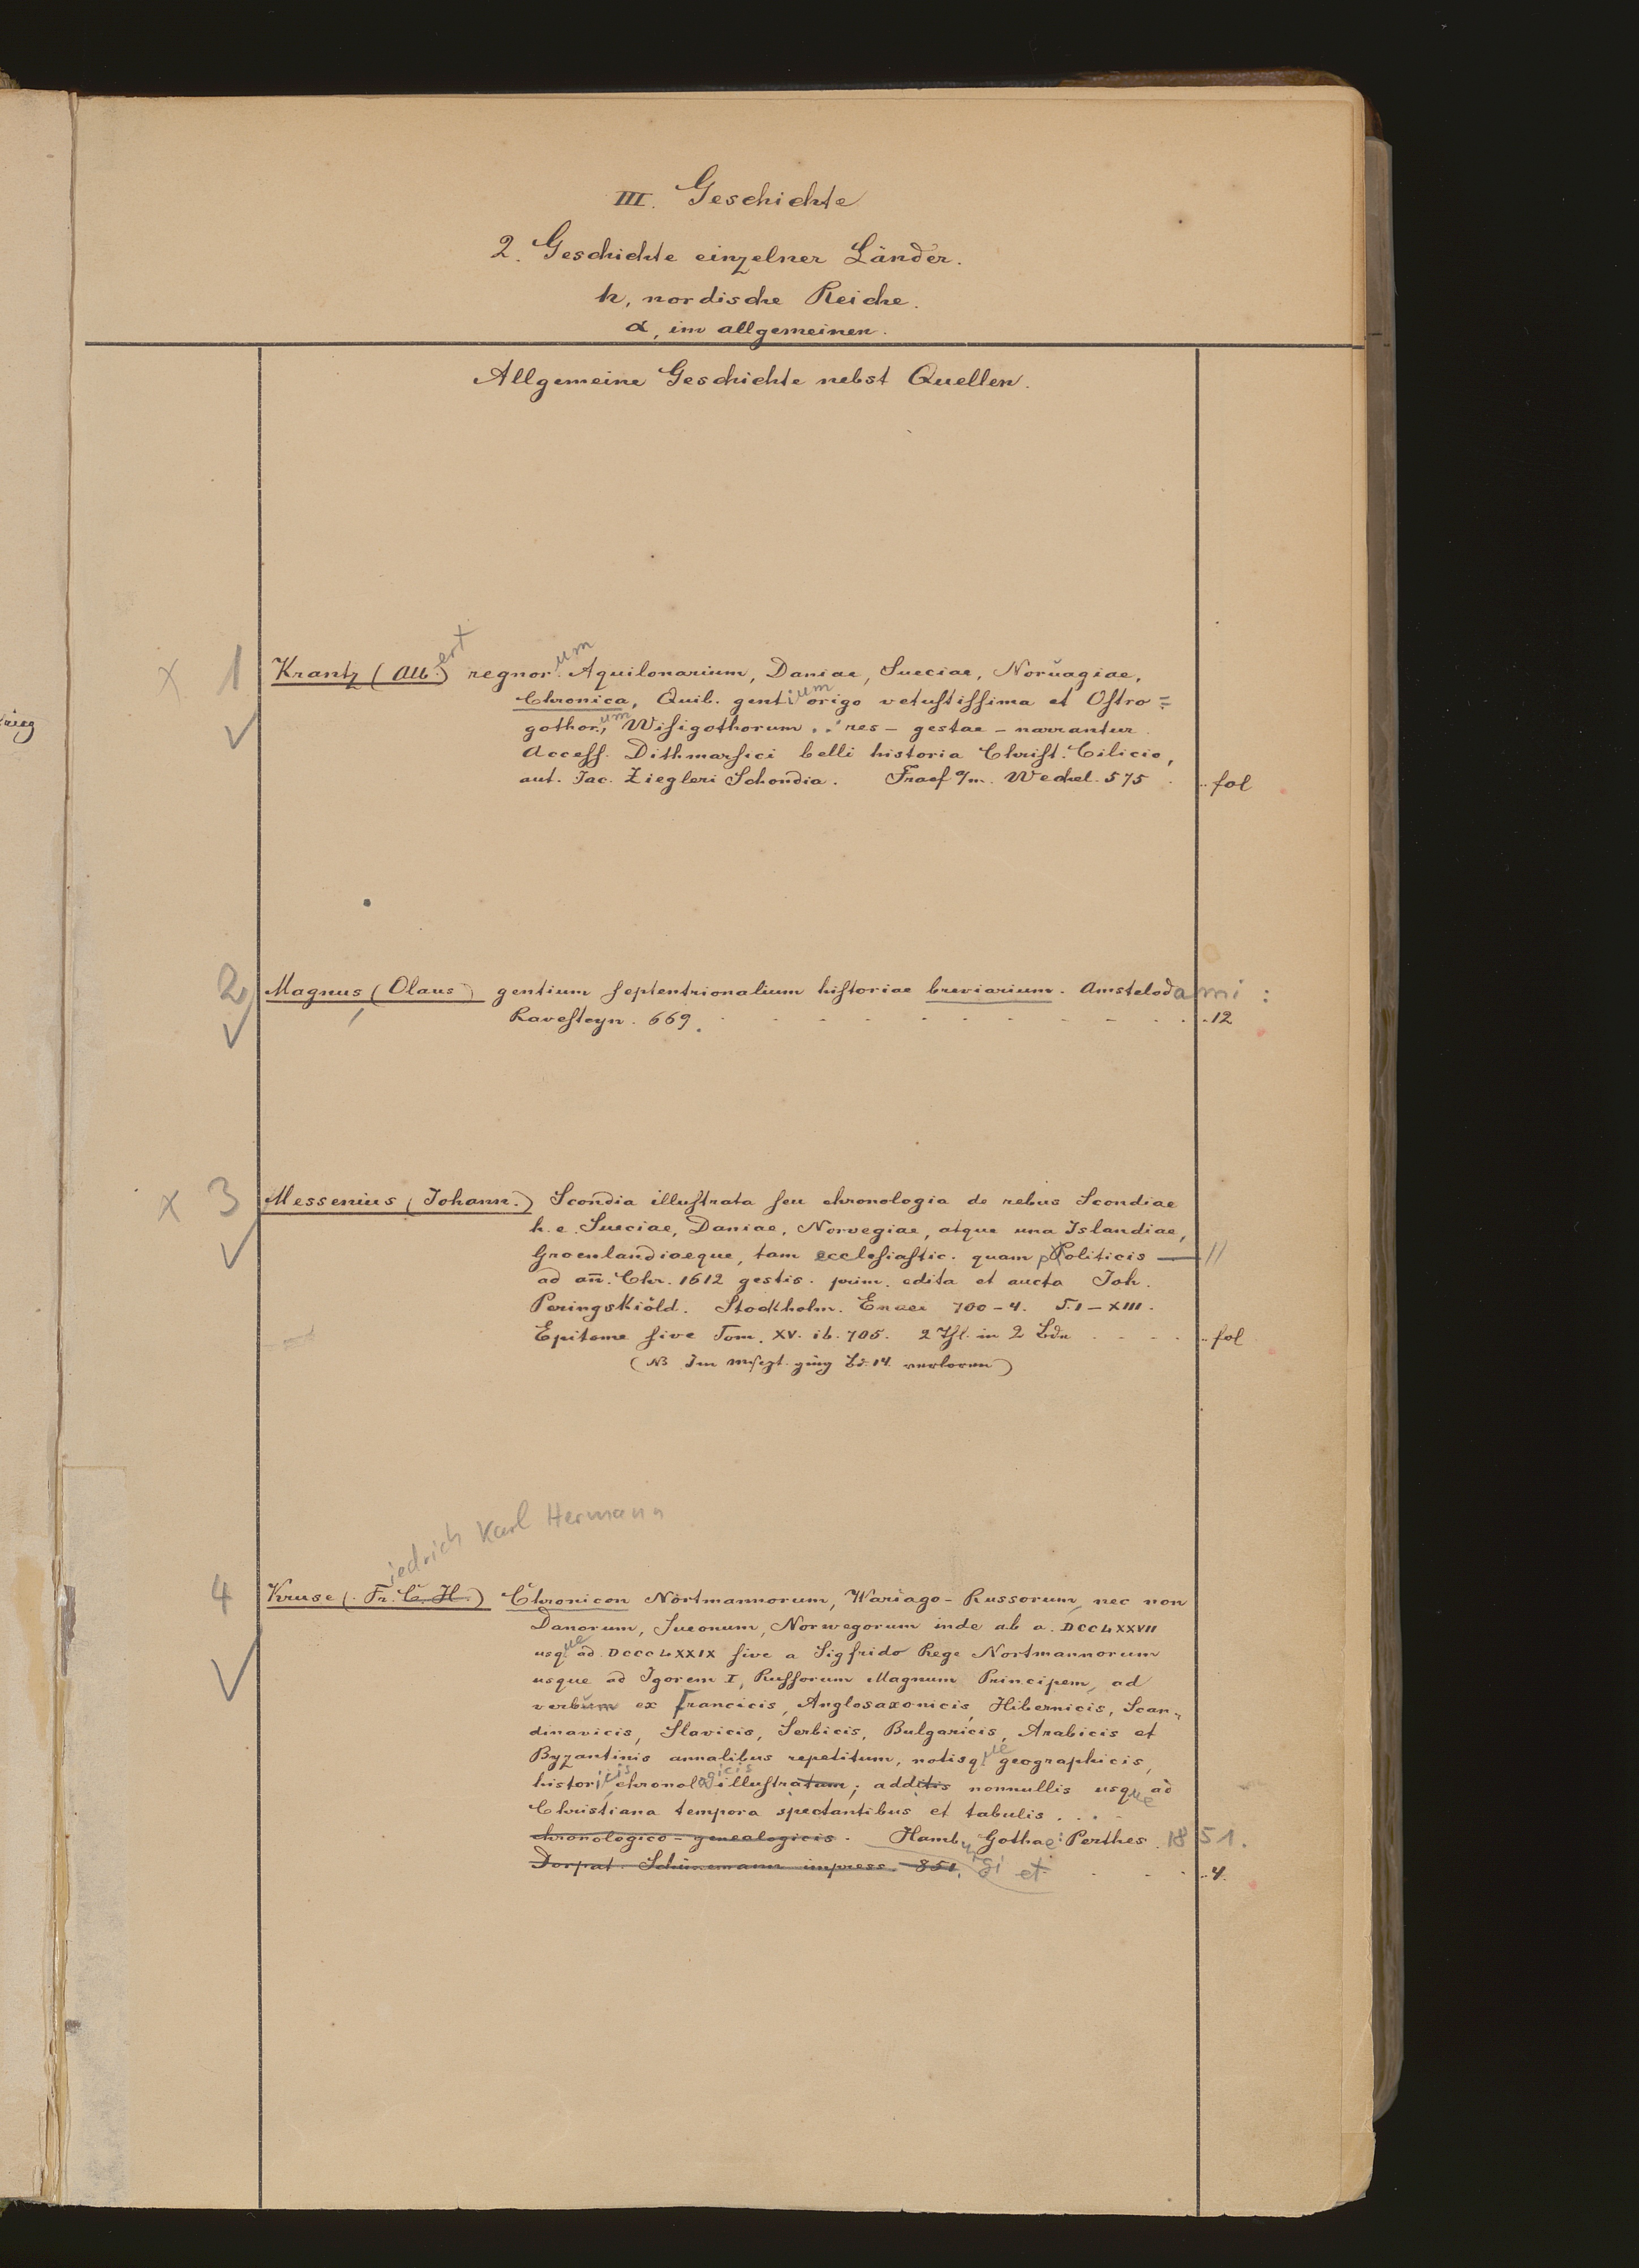 III. Geschichte
2. Geschichte einzelner Länder.
h, nordische Reiche.
α, im allgemeinen.
Allgemeine Geschichte nebst Quellen.
x 1 Krantz (Alb.ert) regnor.um Aquilonarium, Daniae, Sueciae, Norŭagiae,
Chronica, Quib. gentium origo vetustissima et Ostro=
gothor.um, Wisigothorum .. res - gestae - narrantur.
Access. Dithmarsici belli historia Christ. Cilicio,
aut. Jac. Ziegleri Schondia. Fracf a/m. Wechel. 575 . .. fol
2 Magnus (Olaus) gentium septentrionalium historiae breviarium. Amstelodami :
Ravesteyn. 669. . . . . . . . . . . . 12
x 3 Messenius (Johann.) Scondia illustrata seu chronologia de rebus Scondiae
h. e. Sueciae, Daniae, Norvegiae, atque una Islandiae,
Groenlandiaeque, tam ecclesiastic. quam politicis — 11
ad añ. Chr. 1612 gestis. prim. edita et aucta Joh.
Peringskiöld. Stockholm. Enaei 700-4. T. I - XIII.
Epitome sive Tom. XV. ib. 705. 2 Thl. in 2 Bdn . . . . .. fol
(NB Im Mscpt. ging Bd. 14. verloren)
iedrich Karl Hermann
4 Kruse (Fr. C. H.) Chronicon Nortmannorum, Wariago-Russorum, nec non
Danorum, Sueonum, Norwegorum inde ab a. DCCLXXVII
usque ad DCCCLXXIX sive a Sigfrido Rege Nortmannorum
usque ad Igorem I, Russorum Magnum Principem, ad
verbum ex Francicis, Anglosaxonicis, Hibernicis, Scan=
dinavicis, Slavicis, Serbicis, Bulgaricis, Arabicis et
Byzantinis annalibus repetitum, notisque geographicis,
historicis, chronologicis illustratum; additis nonnullis usque ad
Christiana tempora spectantibus et tabulis . . . .
chronologico-genealogicis. Hamb Gothae: Perthes. 1851.
Dorpat. Schünemann impress. 851. urgi et . . . .. 4.